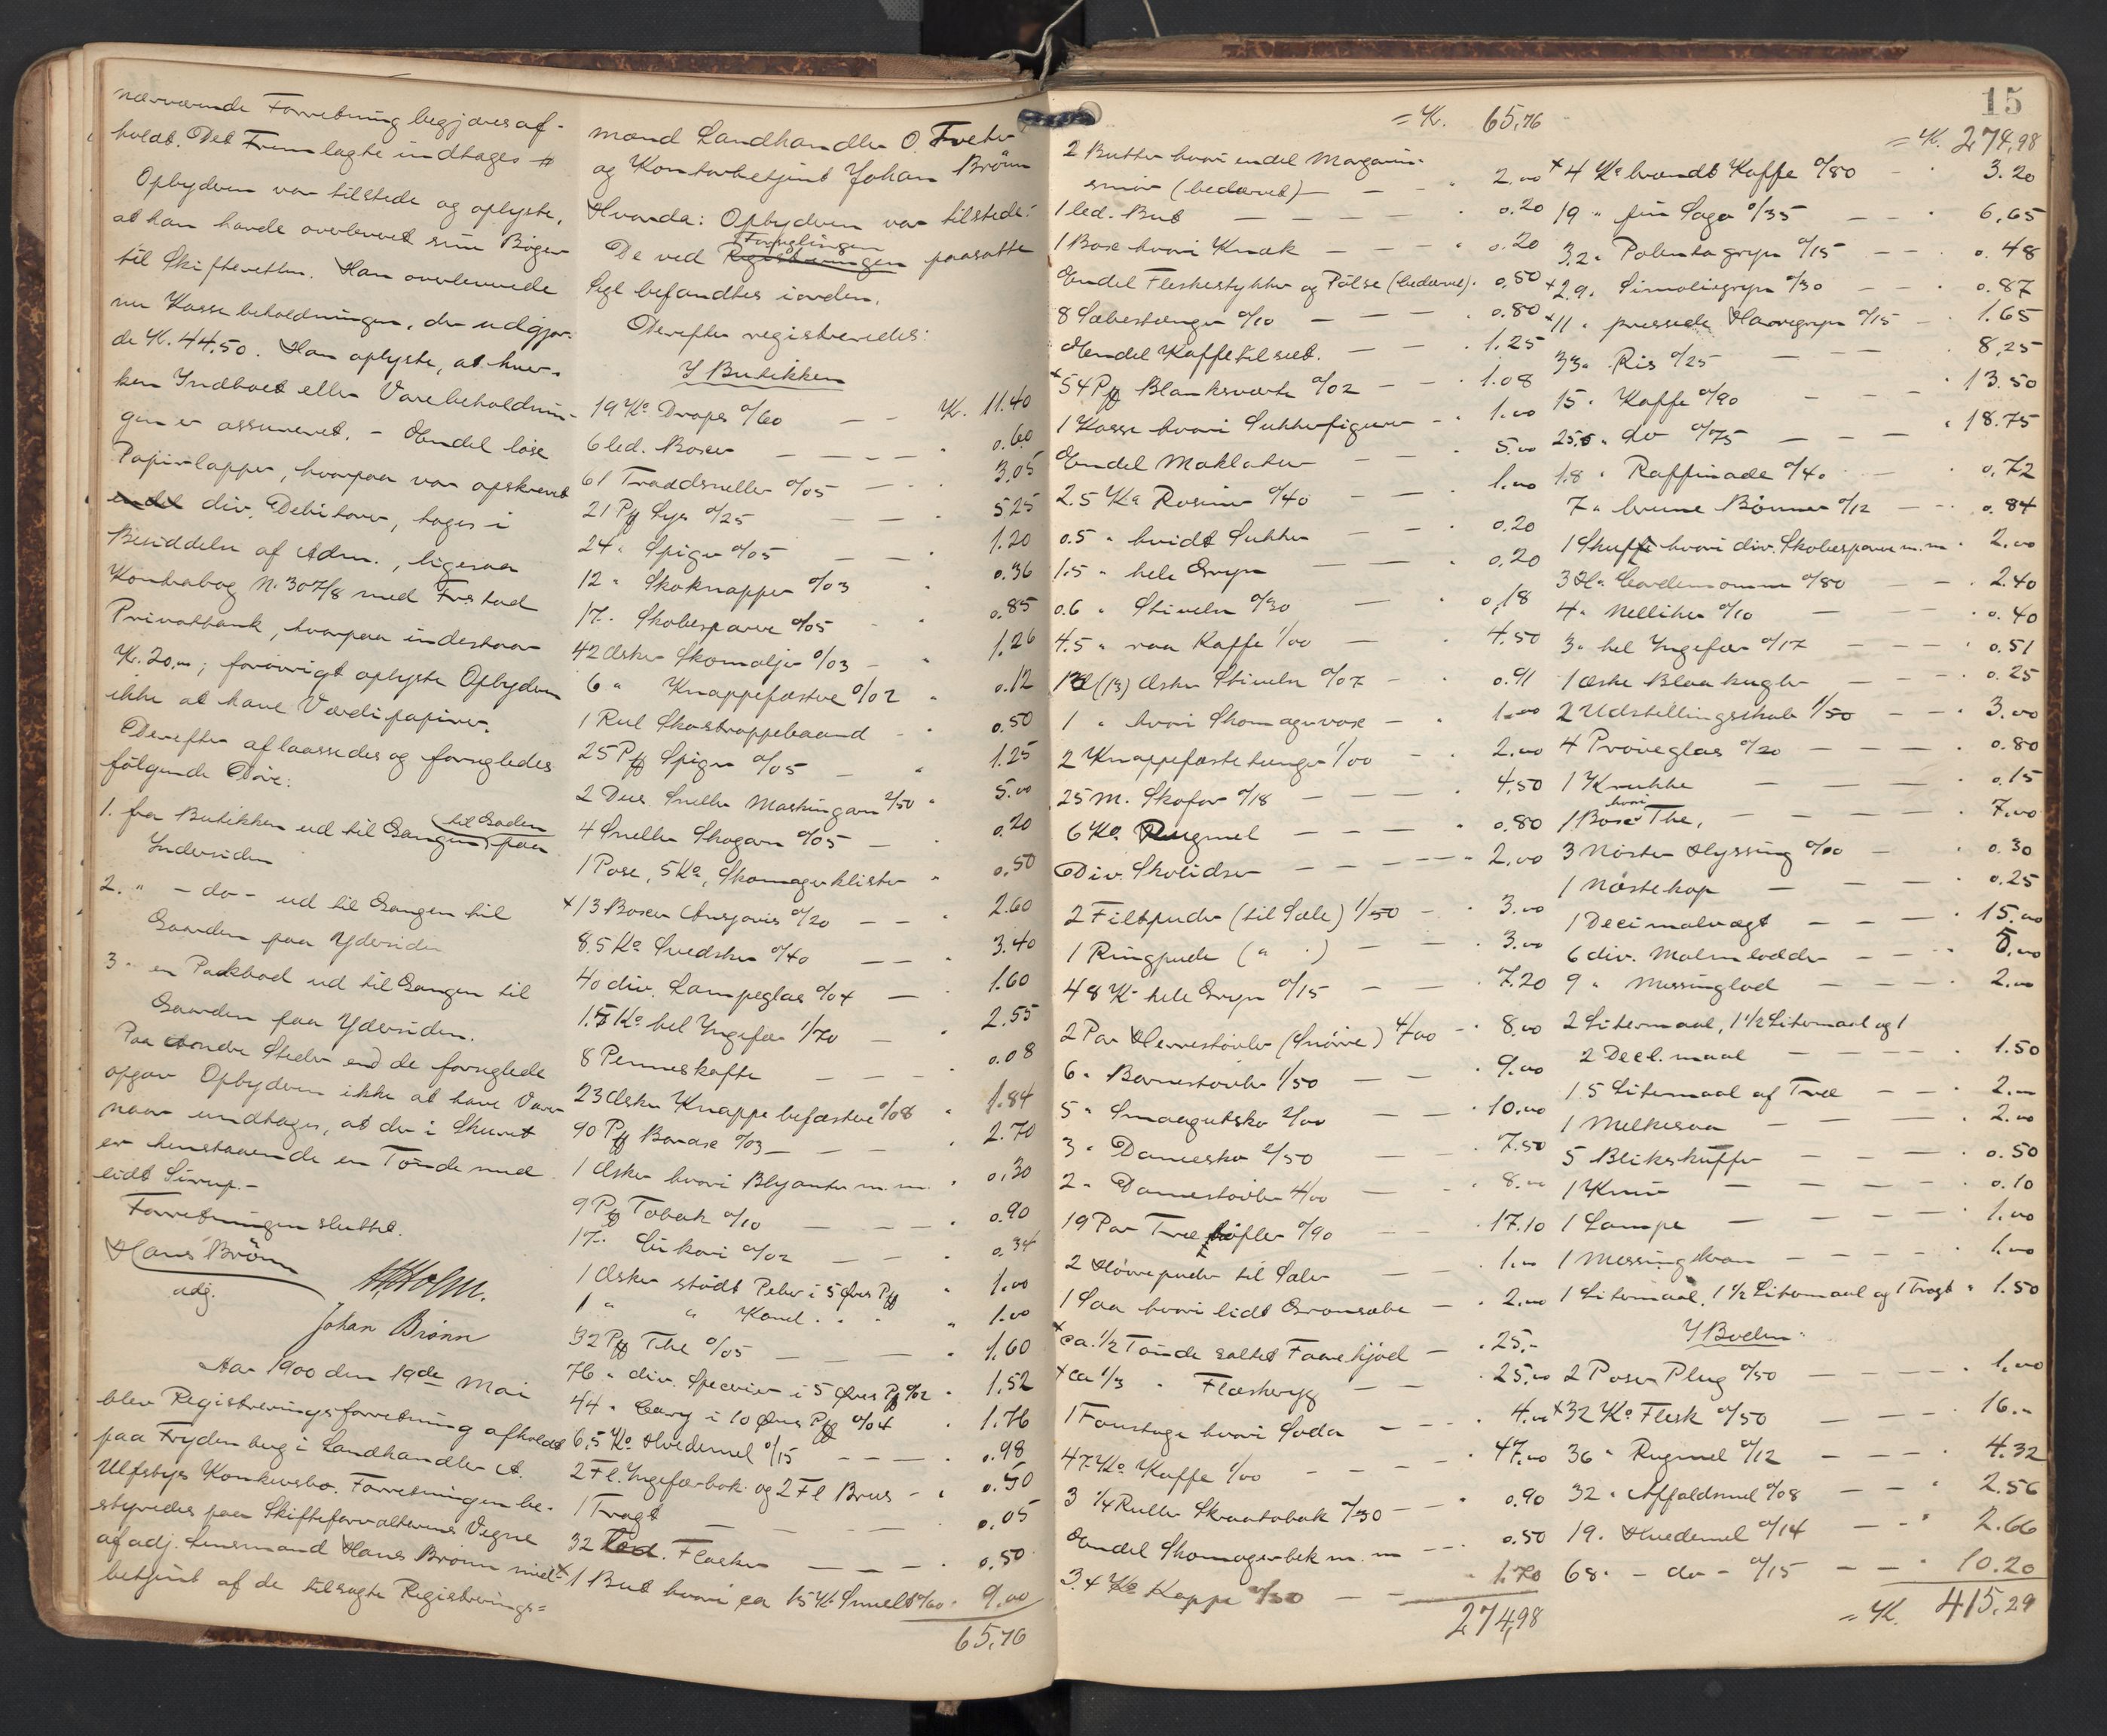 nærværende Forretning begjæres af-
holdt. Det Fremlagte indtages #
Opbyderen var tilstede og oplyste,
at han havde overleveret sine Bøger
til Skifteretten. Han overleverede
nu Kassebeholdningen, der udgjor-
de Kr. 44.50. Han oplyste, at hver-
ken Indboet eller Varebeholdnin-
gen er assureret. - Endel løse
Papirlapper, hvorpaa var opskrevet
endel div. Debitorer, toges i
Besiddelse af Adm., ligesaa
Kontrabog N. 307/8 med Fr.stad
Privatbank, hvorpaa indestaar
Kr. 20.00; forøvrigt oplyste Opbyderen
ikke at have Værdipapirer.
Derefter aflaasedes og forsegledes
følgende Døre:
1. fra Butikken ud til Gangen til Gaden paa
Indersiden
2. " - do - ud til Gangen til
Gaarden paa Ydersiden
3. en Pakbod ud til Gangen til
Gaarden paa Ydersiden.
Paa andre Steder end de forseglede
opgav Opbyderen ikke at have Varer
naar undtages, at der i Skuret
er henstaaende en Tønde med
lidt Sirup.-
Forretningen sluttet.
Hans Brönn
adj.
Holm.
Johan Brönn
Aar 1900 den 19de Mai
blev Registreringsforretning afholdt
paa Frydenberg i Landhandler A.
Ulfsbys Konkursbo. Forretningen be-
styredes paa Skifteforvalterens Vegne
af adj. Lensmand Hans Brönn med-
betjent af de tilsagte Registrerings=
mænd Landhandler O. Tveter
og Kontorbetjent Johan Brönn
Hvorda: Opbyderen var tilstede.
De ved Registreringen Forseglingen paasatte
Segl befandtes iorden.
Derefter registreredes:
I Butikken
19 Ko. Drops 0/60 — Kr. 11.40
6 led. Boxer — — — " 0.60
61 Traadsneller 0/05 — - " 3.05
21 Pk Lys 0/25 — — " 5.25
24 " Spiger 0/05 — — " 1.20
12 " Skoknapper 0/03 " 0.36
17. Skobesparere 0/05 - " 0.85
42 Æsker Skomaljer 0/03 - " 1.26
6 " Knappefæstere 0/02 " 0.12
1 Rul Skostroppebaand - " 0.50
25 Pk Spiger 0/05 — " 1.25
2 Dus. Sneller Maskingarn 2/50 " 5.00
4 Sneller Skogarn 0/05 — " 0.20
1 Pose, 5 Ko, Skomagerklister " 0.50
x 13 Boxer Ansjovis 0/20 — — " 2.60
8.5 Ko Svedsker 0/40 — — " 3.40
40 div. Lampeglas 0/04 — " 1.60
1.5 Ko hel Ingefær 1/70 — " 2.55
8 Penneskafte — — — " 0.08
23 Æsker Knappebefæstere 0/08 " 1.84
90 Pk Borax 0/03 — — — " 2.70
1 Æske hvori Blyanter m.m. " 0.30
9 Pk Tobak 0/10 — — — " 0.90
17. Cikori 0/02 — — " 0.34
1 Æske stødt Peber i 5 Øres Pk " 1.00
1 " " Kanel . . " " 1.00
32 Pk The 0/05 — — — " 1.60
76 " div. Specerier i 5 Øres Pk 0/02 " 1.52
44 " Carry i 10 Øres Pk 0/04 " 1.76
6,5 Ko. Hvedemel 0/15 — — " 0.98
2 Fl. Ingefærbok. og 2 Fl Brus - " 0.50
1 Tragt — — — " 0.05
32 Flasker — — — " 0.50
x 1 But hvori ca 15 K. 0/60 " 9.00
65,76
= Kr. 65,76
2 Butter hvori endel Margarin-
smør (bedærvet) — — " 2.00
1 led. But — — — — " 0.20
1 Boxe hvori Knæk — — — " 0.20
Endel Fleskestykker og Pølse (bedærvet) " 0.50
8 Sæbestænger 0/10 — — — " 0.80
Endel Kaffetilsæt. — — " 1.25
x 54 Pk Blanksværte 0/02 — — " 1.08
1 Kasse hvori Sukkerfigurer — " 1.00
Endel Makulatur — — " 5.00
2.5 Ko Rosiner 0/40 — — " 1.00
0.5 " hvidt Sukker — - " 0.20
1.5 " hele Gryn — — — " 0.20
0.6 " Stivelse 0/30 — " 0,18
4.5 " raa Kaffe 1/00 — " 4.50
(13) Æsker Stivelse 0/07 - " 0.91
1 " hvori Skomagervox - " 1.00
2 Knappefæstetænger 1/00 — " 2.00
25 M. Skofor 0/18 — — — " 4.50
6 Ko. Rugmel — — — " 0.80
Div. Skolidser — — — — " 2.00
2 Filtpuder (til Sæle) 1/50 — " 3.00
1 Ringpude ( " " ) — — " 3.00
48 K. hele Gryn 0/15 — — " 7.20
2 Par Herrestøvler (Snøre) 4/00 - " 8.00
6 " Barnestøvler 1/50 — — " 9.00
5 " Smaagutsko 2/00 — — " 10.00
3 " Damesko 2/50 — — " 7.50
2 " Damestøvler 4/00 — — " 8.00
19 Par Trætøfler 0/90 — — " 17.10
2 Høvrepuder til Sæler — — " 1.00
1 Saa hvori lidt Grønsæbe — " 2.00
x ca. 1/2 Tønde saltet Faarekjød — " 25.-
x ca 1/3 " Fleskeryg — — " 25.00
1 Fonstage hvori Soda — — " 4.00
47 Ko. Kaffe 1/00 — — — " 47.00
3 1/4 Ruller Skraatobak 0/30 — — " 0.90
Endel Skomagerbek m. m — — " 0.50
3.4 Ko Kappe 0/50 — — " 1.70
274,98
15
= K. 274,98
x 4 Ko. brændt Kaffe 0/80 — " 3.20
19 " fin Sago 0/35 — — " 6.65
3.2 " Polentagryn 0/15 — — " 0.48
x 2.9 " Simoliegryn 0/30 — — " 0.87
x 11 " pressede Havregryn 0/15 — " 1.65
33 " Ris 0/25 — — — " 8,25
15 " Kaffe 0/90 — — — " 13.50
25.5 " do 0/75 — — — " 18.75
1.8 " Raffinade 0/40 — — " 0.72
7 " brune Bønner 0/12 — — " 0.84
1 Skuffe hvori div. Skobesparere m.m " 2.00
3 H. Cardemomme 0/80 — — " 2.40
4 " Nelliker 0/10 — — — " 0.40
3 " hel Ingefær 0/17 — — — " 0.51
1 Æske Blaakugler — — — " 0.25
2 Udstillingsskabe 1/50 — — " 3.00
4 Prøveglas 0/20 — — — " 0.80
1 Krukke — — — " 0.15
1 Boxe hvori The, — — — " 7.00
3 Nøster Hyssing 0/10 — " 0.30
1 Nøstekop — — — " 0.25
1 Decimalvægt — — — " 15.00
6 div. Malmlodder — — " 5.00
9 " Messinglod — — — " 2.00
2 Litermaal, 1 1/2 Litermaal og 1
2 Decl. maal — — — " 1.50
1 5 Litermaal af Træ — — " 2.00
1 Melkesaa — — — " 2.00
5 Blikskuffer — — — " 0.50
1 Kniv — — — — " 0.10
1 Lampe — — — — " 1.00
1 Messingkran — — — — " 1.00
1 Litermaal, 1 1/2 Litermaal og 1 Tragt " 1.50
I Boden:
2 Poser Plug 0/50 — — — " 1.00
x 32 Ko. Flesk 0/50 — — — " 16.-
36 " Rugmel 0/12 — — — " 4.32
32 " Affaldsmel 0/08 — — " 2.56
19. Hvedemel 0/14 — — " 2.66
68. - do - 0/15 — — " 10.20
= K. 415.29